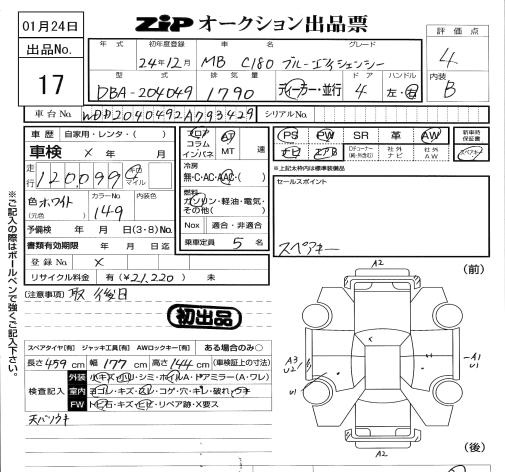 01月24日
ZiP オークション出品票
評価点
4
内装
B
出品No.
17
年式 初年度登録 車名 グレード
24年12月 MB C180 ブルーエフィシェンシー
型式 ドア ハンドル
DBA-204049 1790 ディーラー・並行 4 左・右
車台No. WDD2040492A793429 シリアルNo.
車歴 自家用・レンタ・( )
車検 × 年 月
走行 120,099 キロ マイル
色 (元色) ホワイト カラーNo. 149 内装色
予備検 年 月 日(3・8)No.
書類有効期限 年 月 日迄
登録No. ×
リサイクル料金 有(¥21,220) 未
フロア コラム インパネ AT MT 速
冷房
無・C・AC・AAC( )
燃料
ガソリン・軽油・電気・その他( )
Nox 適合・非適合
乗車定員 5 名
PS PW SR 革 AW
ナビ エアB DFチューナー (純・外含む) 社外ナビ 社外AW
新車時保証書
スペアキー
※上記太枠内は標準装備品
セールスポイント
スペアキー
(注意事項) 取 後日
初出品
スペアタイヤ[有] ジャッキ工具[有] AWロックキー[有] ある場合のみ○
長さ 459 cm 幅 177 cm 高さ 144 cm (車検証上の寸法)
検査記入
外装 小キズ・小凹・シミ・ホイルA・ドアミラー(A・ワレ)
室内 ヨゴレ・キズ・スレ・コゲ・穴・キレ・破れ・ウキ
FW トビ石・キズ・ヒビ・リペア跡・X要ス
天バリウキ
※ご記入の際はボールペンで強くご記入下さい。
(前)
A2
A3
U2
U1
A1
U1
A2
(後)